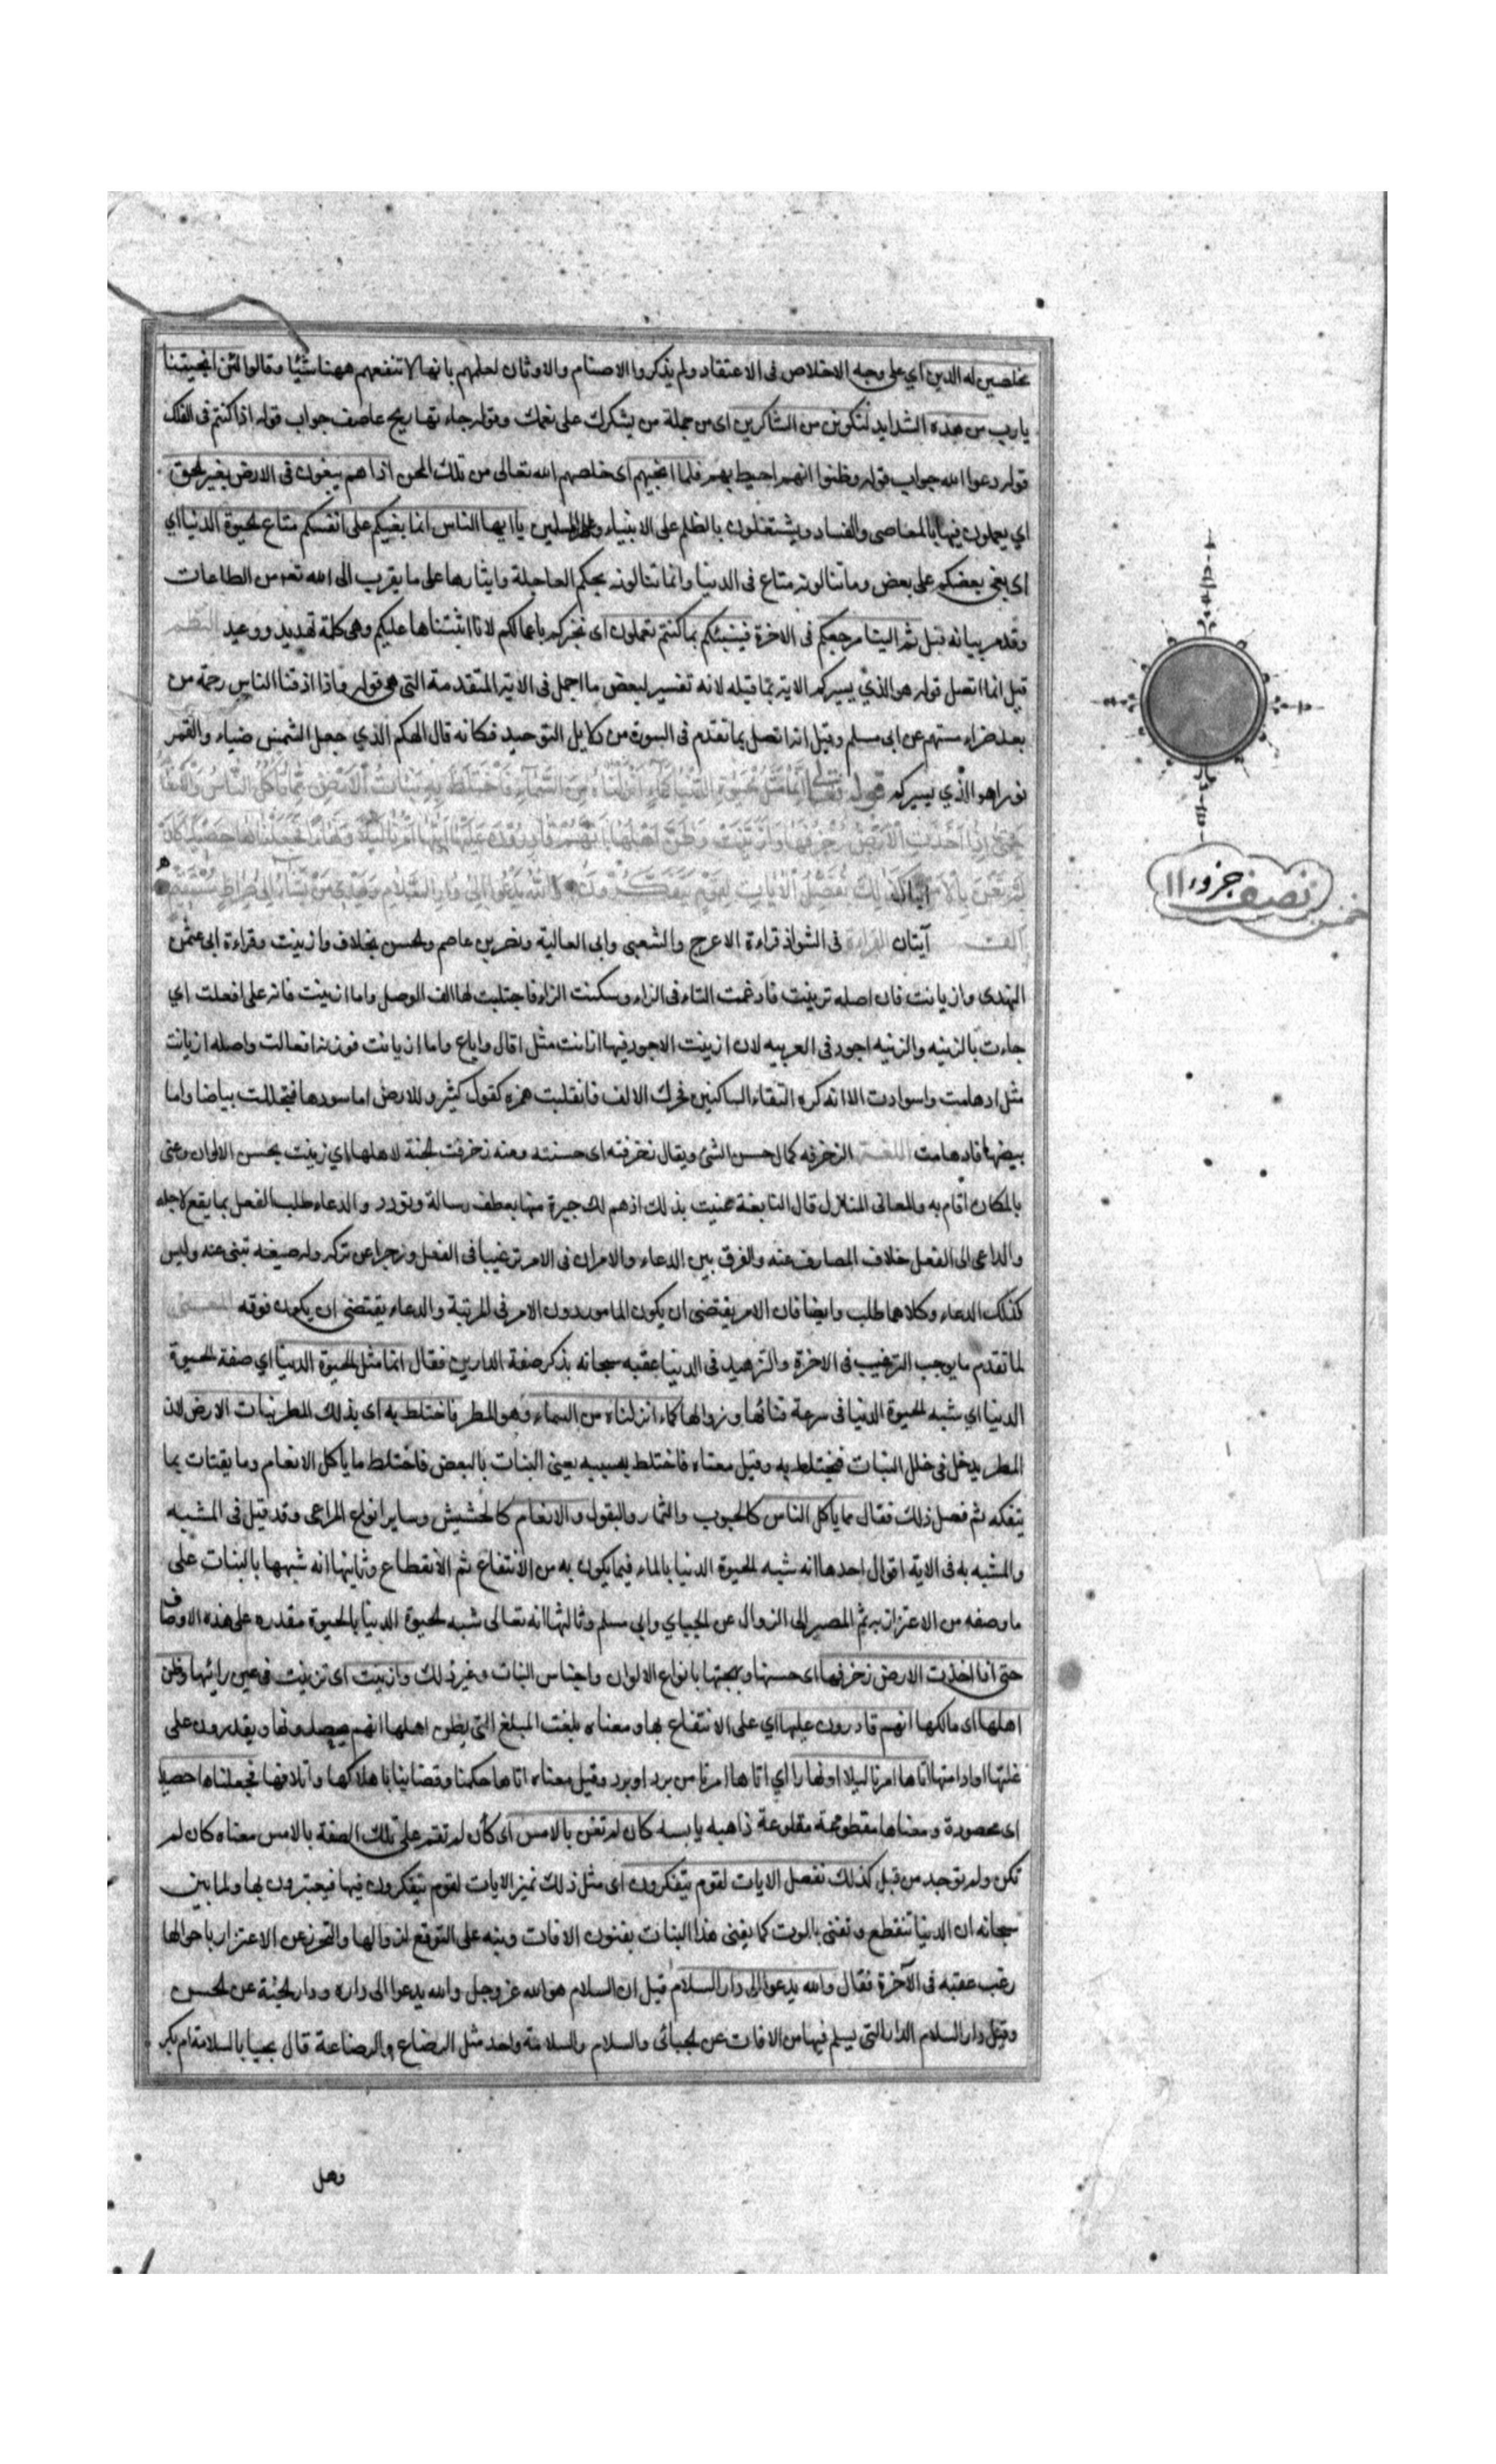 مخلصين له الدين اي على وجه الاخلاص فى الاعتقاد ولم يذكروا الاصنام والاوثان لعلمهم بانها لا تنفعهم ههنا شيئا وقالوا لئن انجيتنا
يارب من هذه الشدايد لنكونن من الشاكرين اى من جملة من يشكرك على نعمك وقوله جاءتها ريح عاصف جواب قوله اذا كنتم فى الفلك
قوله دعوا الله جواب قوله وظنوا انهم احيط بهم فلما انجيهم اى خلصهم الله تعالى من تلك المحن اذا هم يبغون فى الارض بغير الحق
اي يعملون فيها بالمعاصى والفساد ويشتغلون بالظلم على الانبياء وعلى المسلمين يا ايها الناس انما بغيكم على انفسكم متاع الحيوة الدنيا اي
اى بغى بعضكم على بعض وما تنالونه متاع فى الدنيا وانما تنالونه بحبكم العاجلة وايثارها على ما يقرب الى الله تعه من الطاعات
وقدمر بيانه قبل ثم الينا مرجعكم فى الاخرة فينبئكم بما كنتم تعملون اى نخبركم باعمالكم لانا اثبتناها عليكم وهى كلمة تهديد ووعيد النظم
قيل انما اتصل قوله هو الذي يسيركم الاية بما قبله لانه تفسير لبعض ما اجمل فى الاية المتقدمة التى هى قوله واذا اذقنا الناس رحمة من
بعد ضراء مستهم عن ابى مسلم وقيل انه اتصل بما تقدم فى السورة من دلايل التوحيد فكانه قال الهكم الذي جعل الشمس ضياء والقمر
نورا هو الذي يسيركم قوله تعالى انما مثل الحيوة الدنيا كماء انزلناه من السماء فاختلط به نبات الارض مما ياكل الناس والانعام
حتى اذا اخذت الارض زخرفها وازينت وظن اهلها انهم قادرون عليها اتيها امرنا ليلا او نهارا فجعلناها حصيدا كان
لم تغن بالامس كذلك نفصل الايات لقوم يتفكرون والله يدعوا الى دار السلام ويهدي من يشاء الى صراط مستقيم
آيتان القراءة فى الشواذ قراءة الاعرج والشعبى وابى العالية ونصر بن عاصم والحسن بخلاف وازينت وقراءة ابى عثمن
النهدى وازيانت فان اصله تزينت فادغمت التاء فى الزاء وسكنت الزاء فاجتلبت لها الف الوصل واما ازينت فانه على افعلت اي
جاءت بالزينه والزينه اجود فى العربيه لان ازينت الاجود فيها ازانت مثل اقال واباع واما ازيانت فوزنه افعالت واصله ازيانت
مثل ادهامت واسوادت الا انه كره التقاء الساكنين فحرك الالف فانقلبت همزه كقول كثير وللارض اما سودها فتجللت بياضا واما
بيضها فادهامت اللغة الزخرفه كمال حسن الشئ ويقال زخرفته اى حسنته ومنه زخرفت الجنة لاهلها اي زينت بحسن الالوان وغنى
بالمكان اقام به والمعانى المنازل قال النابغة غنيت بذلك اذهم لك جيرة منها بعطف رسالة وتودد والدعاء طلب الفعل بما يقع لاجله
والداعى الى الفعل خلاف الصارف عنه والفرق بين الدعاء والامر ان فى الامر ترغيبا فى الفعل وزجرا عن تركه وله صيغة تنبئ عنه وليس
كذلك الدعاء وكلاهما طلب وايضا فان الامر يقتضى ان يكون المامور دون الامر فى المرتبة والدعاء يقتضى ان يكون فوقه المعنى
لما تقدم ما يوجب الترغيب فى الاخرة والتزهيد فى الدنيا عقبه سبحانه بذكر صفة الدارين فقال انما مثل الحيوة الدنيا اي صفة الحيوة
الدنيا اي شبه الحيوة الدنيا فى سرعة فنائها وزوالها كماء انزلناه من السماء وهو المطر فاختلط به اى بذلك المطر نبات الارض لان
المطر يدخل فى خلل النبات فيختلط به وقيل معناه فاختلط بسببه يعنى النبات بالبعض فاختلط ما ياكل الانعام وما يقتات بما
يتفكه ثم فصل ذلك فقال مما ياكل الناس كالحبوب والثمار والبقول والانعام كالحشيش وساير انواع المراعى وقد قيل فى المشبه
والمشبه به فى الاية اقوال احدها انه شبه الحيوة الدنيا بالماء فيما يكون به من الانتفاع ثم الانقطاع وثانيها انه شبهها بالنبات على
ما وصفه من الاغترار به ثم المصير الى الزوال عن الجبايي وابى مسلم وثالثها انه تعالى شبه الحيوة الدنيا بالحيوة مقدره على هذه الاوصاف
حتى اذا اخذت الارض زخرفها اى حسنها وبهجتها بانواع الالوان واجناس النبات وغير ذلك وازينت اى تزينت فى عين رائيها وظن
اهلها اى مالكها انهم قادرون عليها اي على الانتفاع بها ومعناه بلغت المبلغ التى يظن اهلها انهم يحصدونها ويقدرون على
غلتها او ادامتها اتاها امرنا ليلا او نهارا اي اتاها امرنا من برد او برد وقيل معناه اتاها حكمنا وقضاينا باهلاكها واتلافها فجعلناها حصيدا
اى محصودة ومعناها مقطوعة مقلوعة ذاهبه يابسه كان لم تغن بالامس اى كأن لم تقم على تلك الصفة بالامس معناه كان لم
تكن ولم توجد من قبل كذلك نفصل الايات لقوم يتفكرون اى مثل ذلك نميز الايات لقوم يتفكرون فيها فيعتبرون بها ولما بين
سبحانه ان الدنيا تنقطع وتفنى بالموت كما يفنى هذا النبات بفنون الافات ونبه على التوقع لزوالها والتحرز عن الاغترار باحوالها
رغب عقبه فى الآخرة فقال والله يدعوا الى دار السلام قيل ان السلام هو الله عز وجل والله يدعوا الى داره ودار الجنة عن الحسن
وقيل دار السلام الدار التى يسلم فيها من الافات عن الجبائى والسلام والسلامة واحد مثل الرضاع والرضاعة قال تحيا بالسلامة ام بكر
وهل
نصف جزو ١١